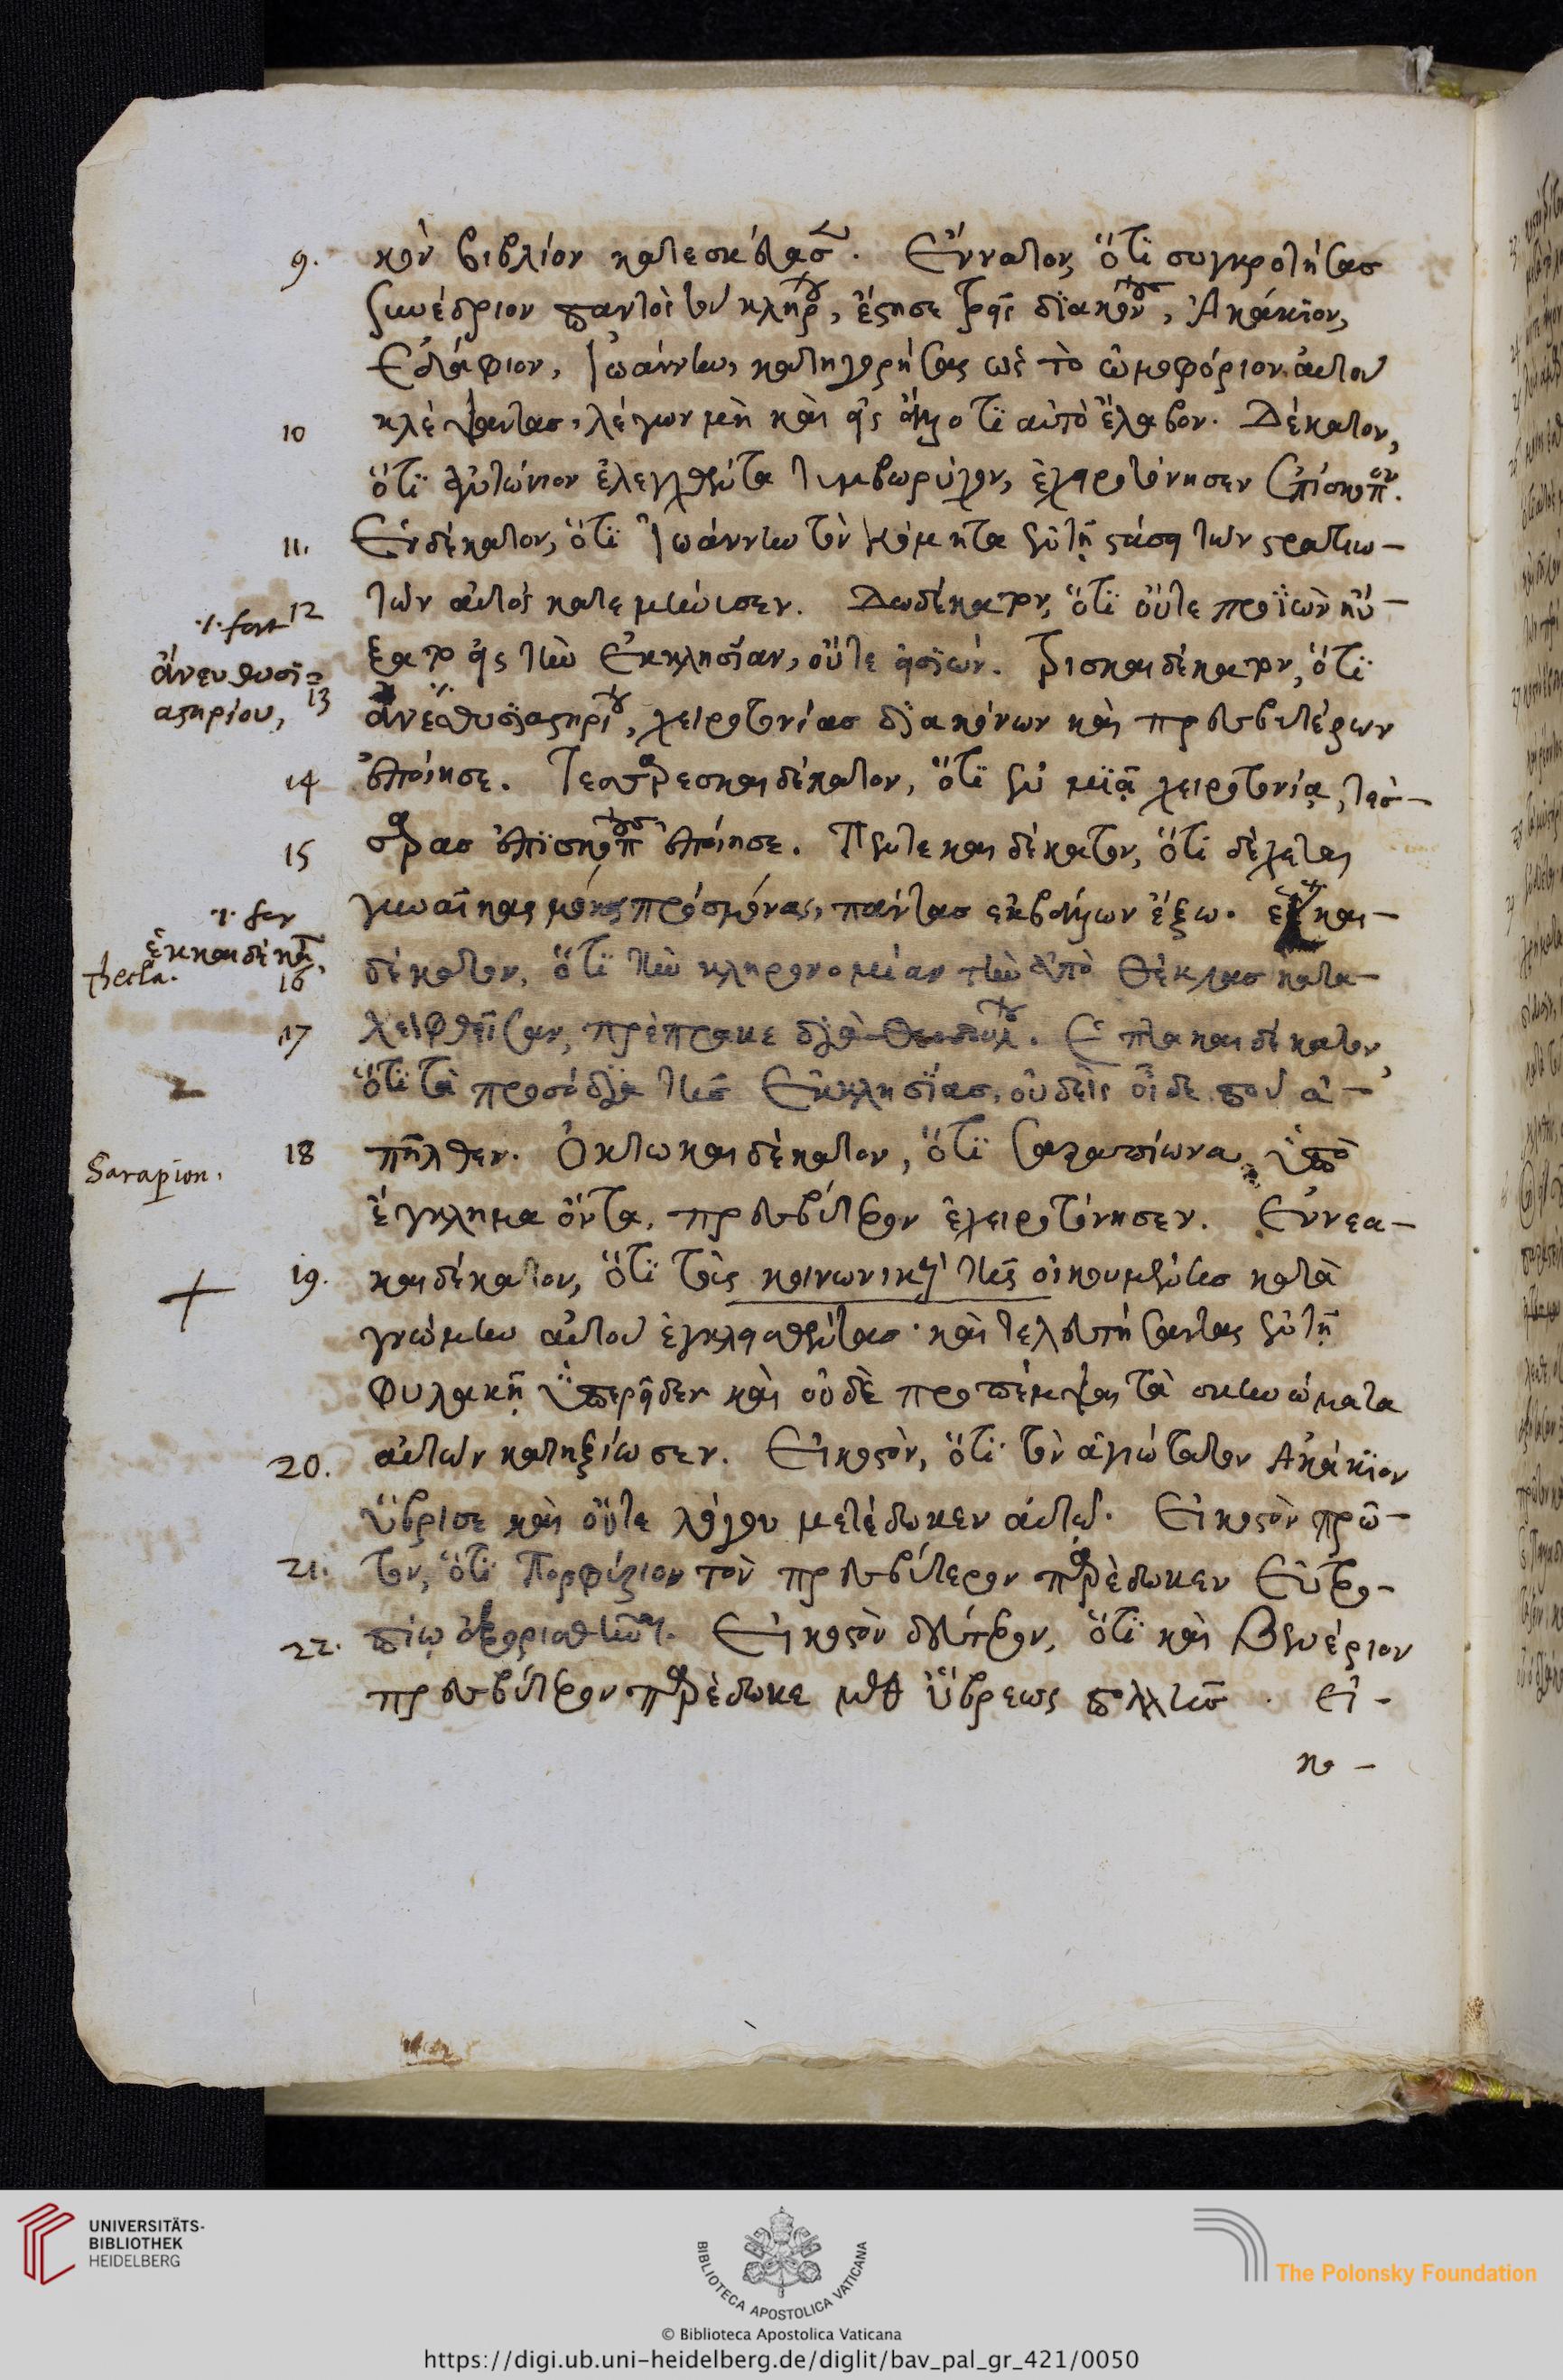 9. κὸν βιβλίον κατεσκεύασε. Ἔννατον, ὅτι συγκροτήσας
συνέδριον παντὸς τοῦ κλήρου, ἔστησε τρεῖς διακόνους, Ἀκάκιον,
Ἐδάφιον, Ἰωάννην, κατηγορήσας ὡς τὸ ὠμοφόριον αὐτοῦ
10 κλέψαντας, λέγων μὴ καὶ εἰς ἄλλο τί αὐτὸ ἔλαβον. Δέκατον,
ὅτι Ἀντώνιον ἐλεγχθέντα τυμβωρύχον, ἐχειροτόνησεν ἐπίσκοπον.
11. Ἑνδέκατον, ὅτι Ἰωάννην τὸν κόμητα ἐν τῇ στάσει τῶν στρατιω-
12 τῶν αὐτὸς κατεμήνυσεν. Δωδέκατον, ὅτι οὔτε προϊὼν ηὔ-
ξατο εἰς τὴν Ἐκκλησίαν, οὔτε εἰσιών. Τρισκαιδέκατον, ὅτι
·/· fort
ἀνευ θυσι=
αστηρίου,
13 ἀνεοθυσιαστηρίου, χειροτονίας διακόνων καὶ πρεσβυτέρων
14 ἐποίησε. Τεσσαρεσκαιδέκατον, ὅτι ἐν μιᾷ χειροτονίᾳ, τέσ-
15 σαρας ἐπισκόπους ἐποίησε. Πεντεκαιδέκατον, ὅτι δέχεται
γυναῖκας μόνος πρὸς μόνας, πάντας ἐκβάλλων ἔξω. ἑκκαι-
ἑκκαιδέκατ,
Thecla.
16 δέκατον, ὅτι τὴν κληρονομίαν τὴν ἀπὸ Θέκλας κατα-
17 λειφθεῖσαν, πέπρακε διὰ Θεοδούλου. Ἑπτακαιδέκατον,
ὅτι τὰ προσόδια τῆς Ἐκκλησίας, οὐδεὶς οἶδε ποῦ ἀ-
18 πῆλθεν. Ὀκτωκαιδέκατον, ὅτι Σαραπίωνα, ὑπὸ
Sarapion.
ἔγκλημα ὄντα, πρεσβύτερον ἐχειροτόνησεν. Ἐννεα-
19. καιδέκατον, ὅτι τοὺς κοινωνικοὺς τῆς οἰκουμένης κατὰ
γνώμην αὐτοῦ ἐγκλεισθέντας· καὶ τελευτήσαντας ἐν τῇ
φυλακῇ ὑπερεῖδεν καὶ οὐδὲ προπέμψαι τὰ σκηνώματα
20. αὐτῶν κατηξίωσεν. Εἰκοστὸν, ὅτι τὸν ἁγιώτατον Ἀκάκιον
ὕβρισε καὶ οὔτε λόγου μετέδωκεν αὐτῷ. Εἰκοστὸν πρῶ-
21. τον, ὅτι Πορφύριον τὸν πρεσβύτερον παρέδωκεν Εὐτρο-
22. πίῳ ἐξορισθῆναι. Εἰκοστὸν δεύτερον, ὅτι καὶ Βενέριον
πρεσβύτερον παρέδωκε μετὰ ὕβρεως πολλῆς. εἰ-
κο-
UNIVERSITÄTS-
BIBLIOTHEK
HEIDELBERG
BIBLIOTECA APOSTOLICA VATICANA
The Polonsky Foundation
© Biblioteca Apostolica Vaticana
https://digi.ub.uni-heidelberg.de/diglit/bav_pal_gr_421/0050